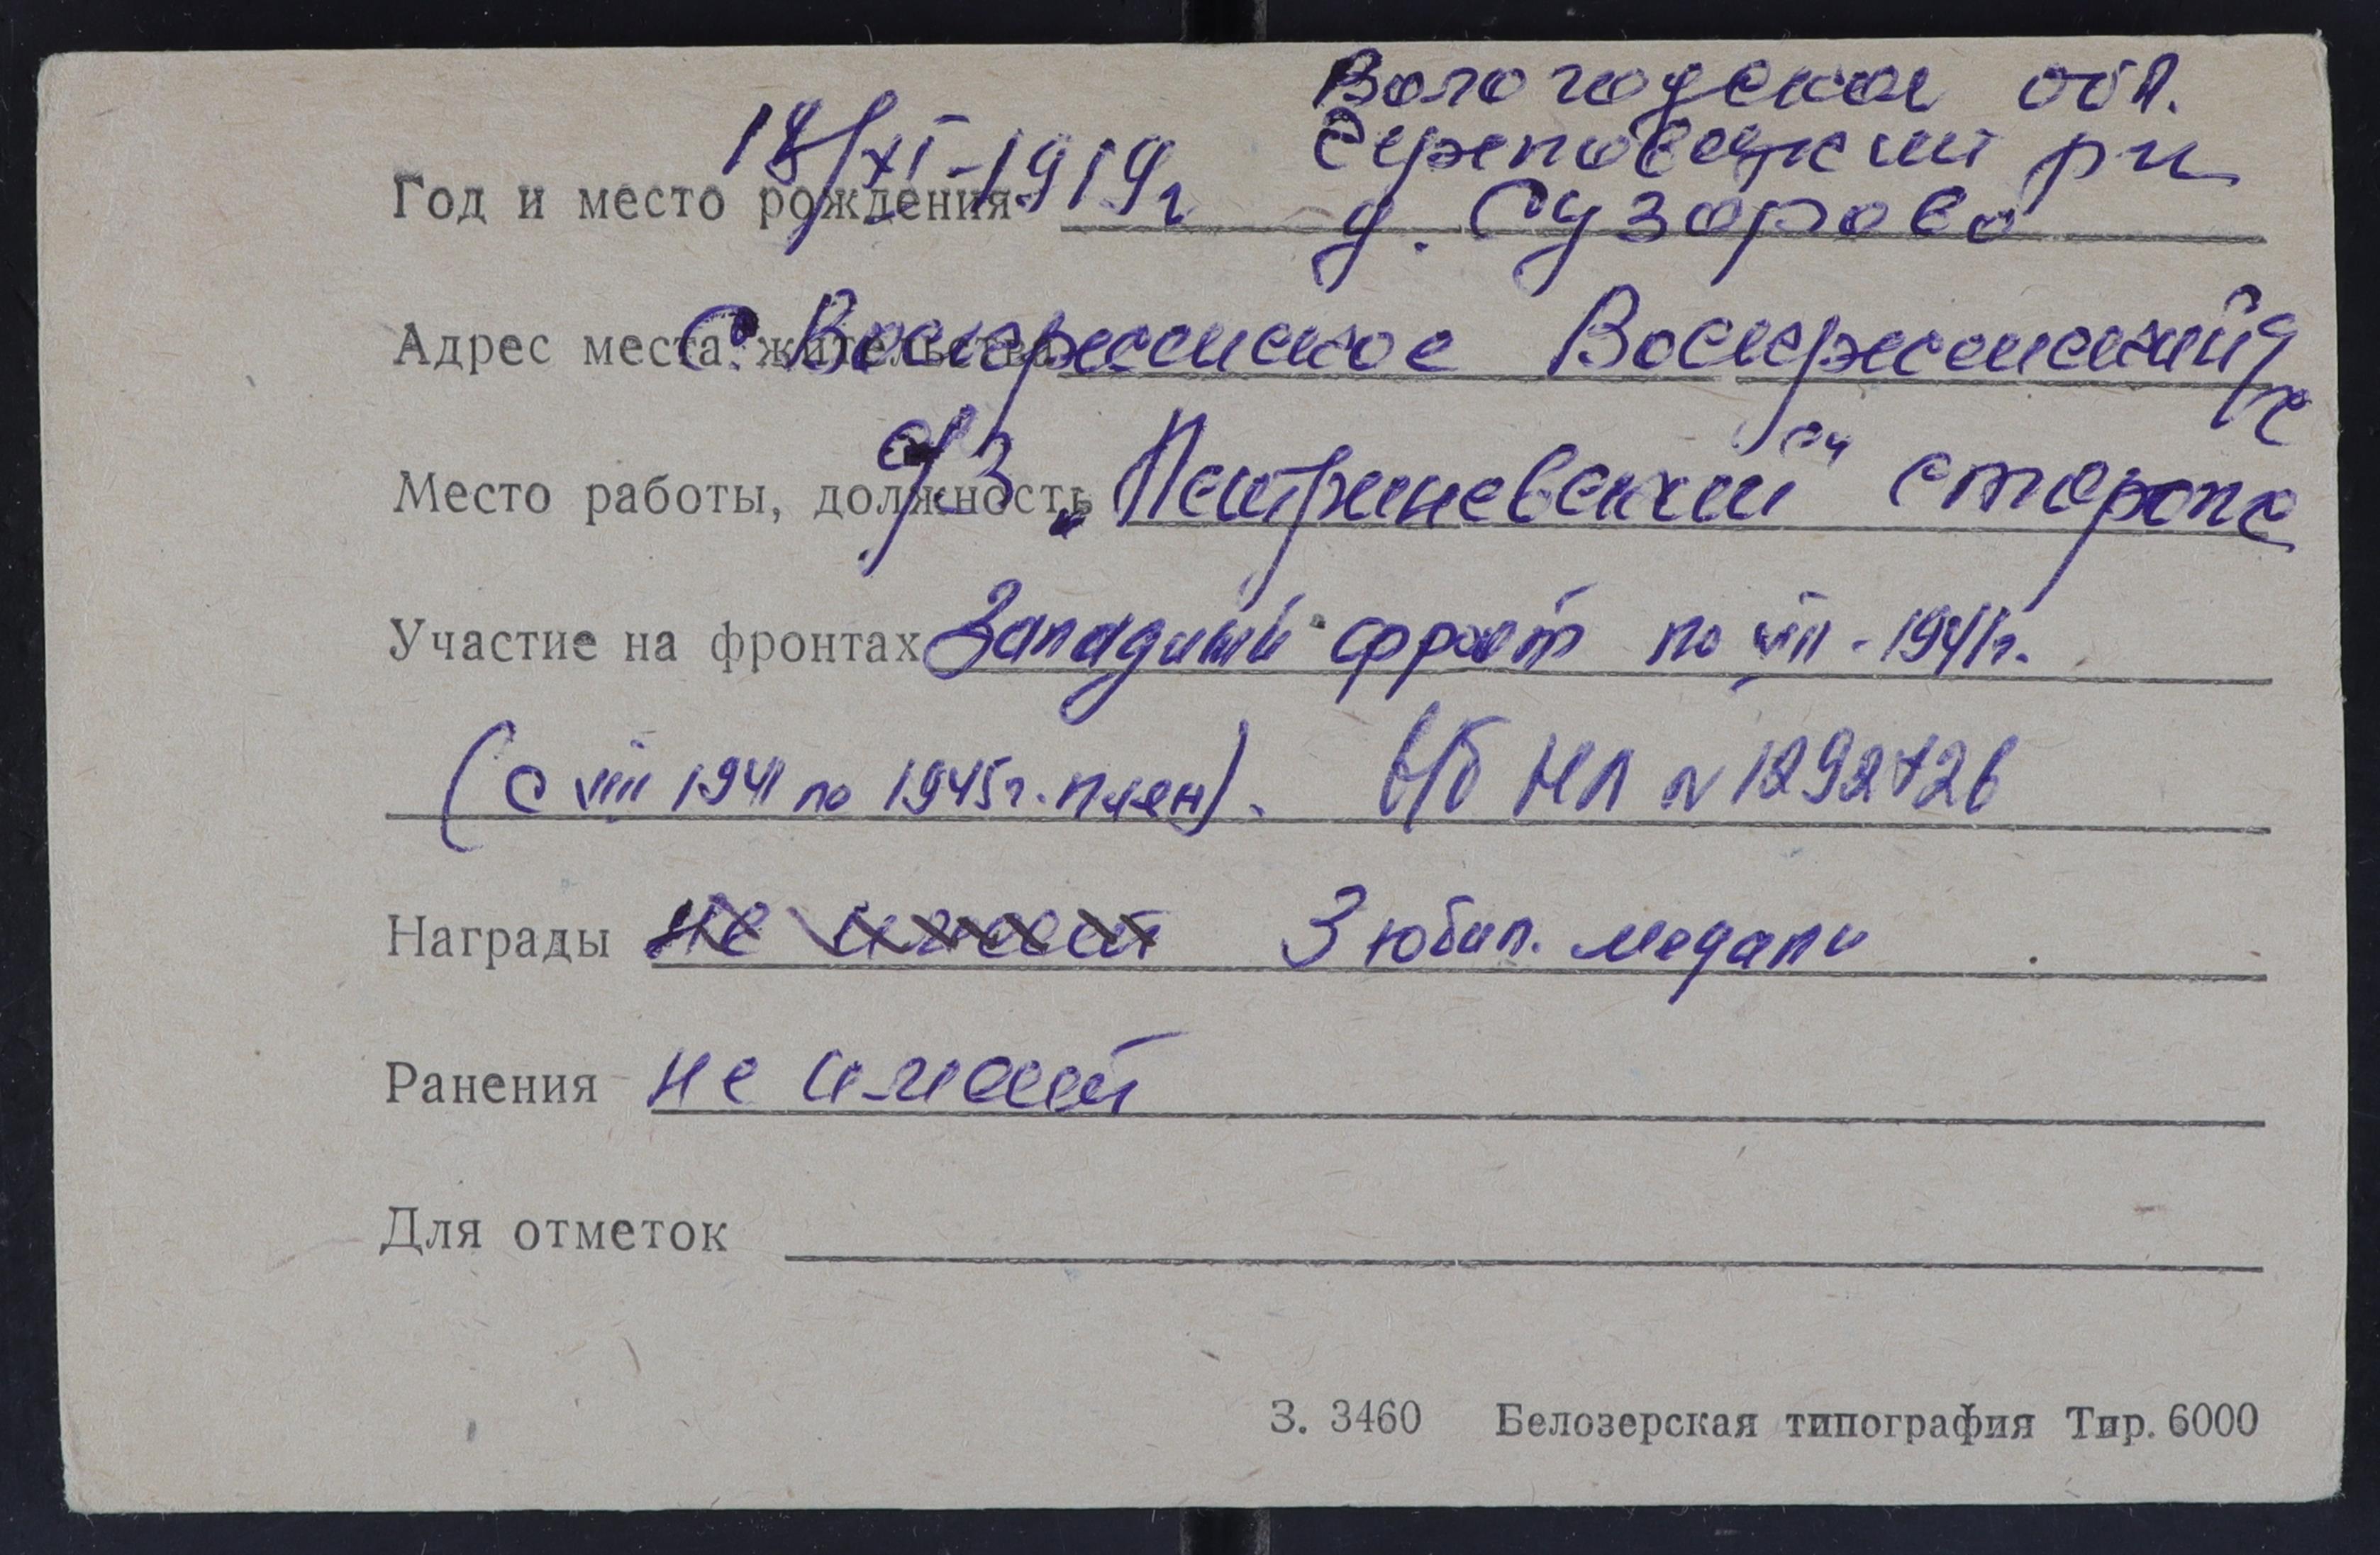 Вологодская обл.
Череповецкий рн
Год и место рождения 18/XI-1919г д. Сузорово
Адрес места жительства с. Воскресенское Воскресенский
Место работы, должность „Петриневский" сторож
Участие на фронтах Западный фронт по VIII-1941г.
(с VIII 1941 по 1945г. плен). в/б НЛ N
Награды не имеет 3 юбил. медали
Ранения не имеет
Для отметок
З. 3460 Белозерская типография Тир. 6000